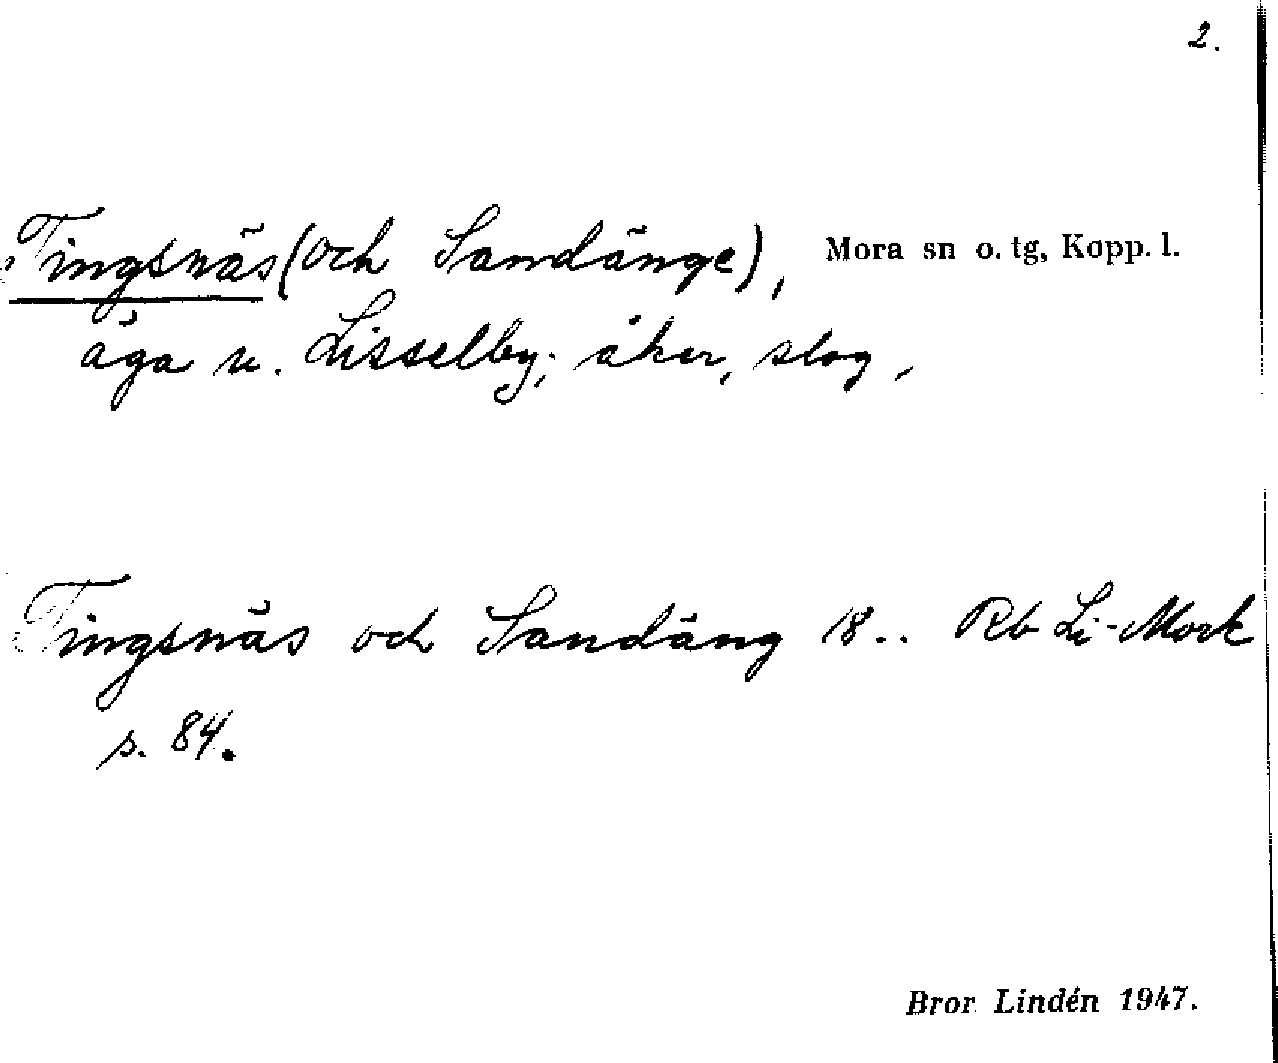 2.
Tingsnäs (och Sandänge), Mora sn o. tg, Kopp. l.
äga u. Lisselby; åker, slog,
Tingsnäs och Sandäng 18.. Rb Li-Mork
s. 84.
Bror Lindén 1947.